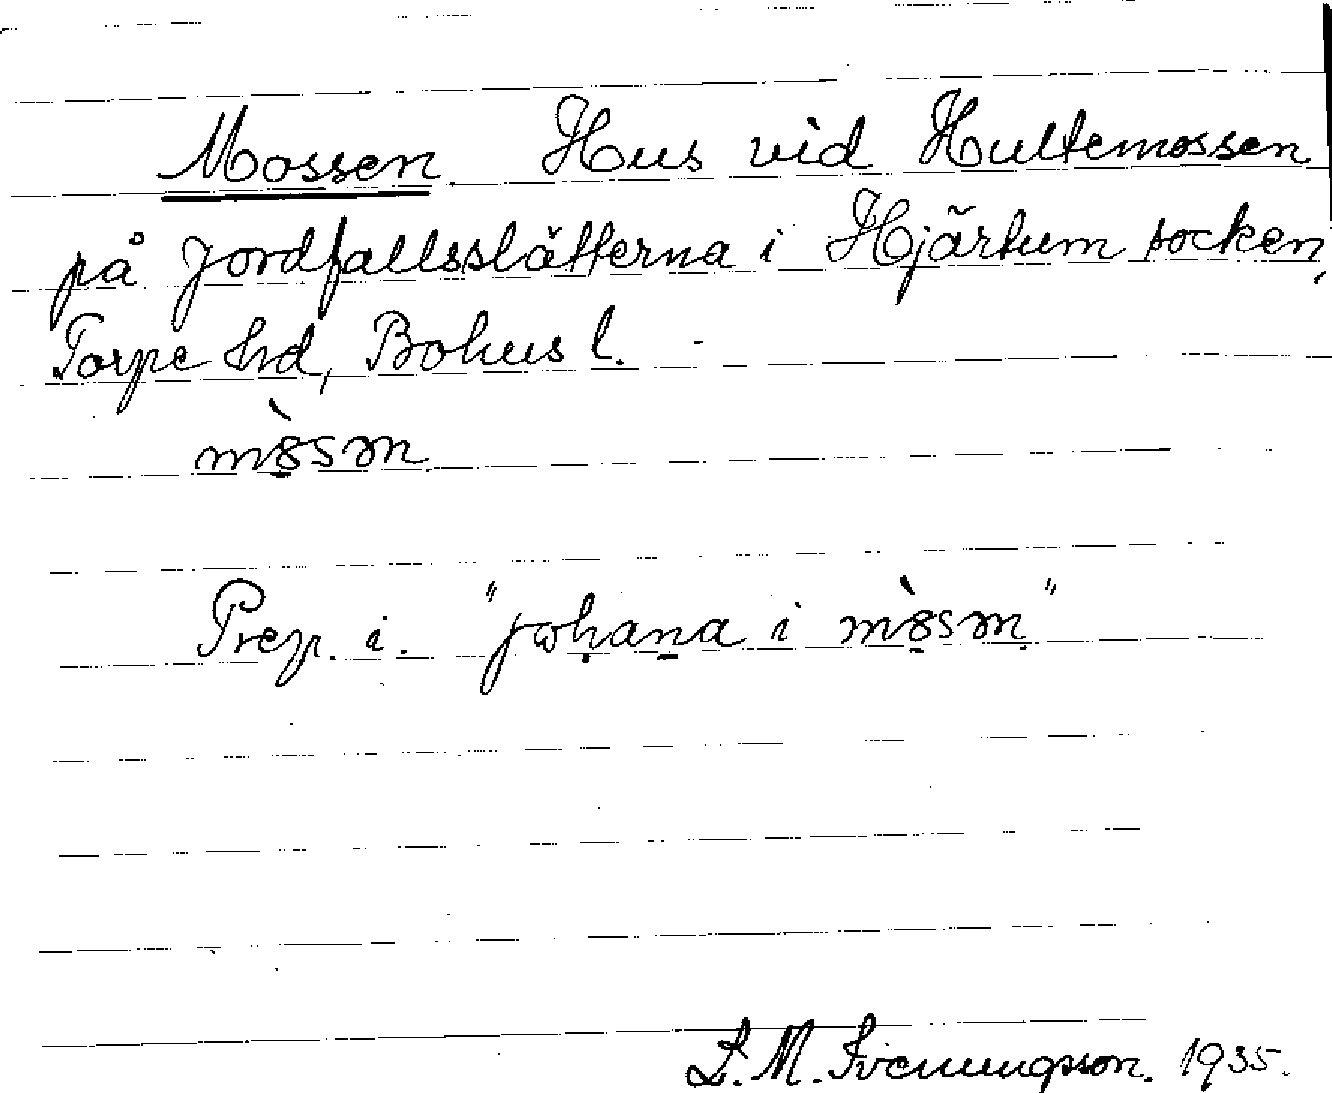 Mossen. Hus vid Hultemossen
på Jordfallsslätterna i Hjärtum socken,
Torpe hd, Bohus l.
mòssən
Prep. i. "johana i mòsən"
L. M. Svenungsson. 1935.